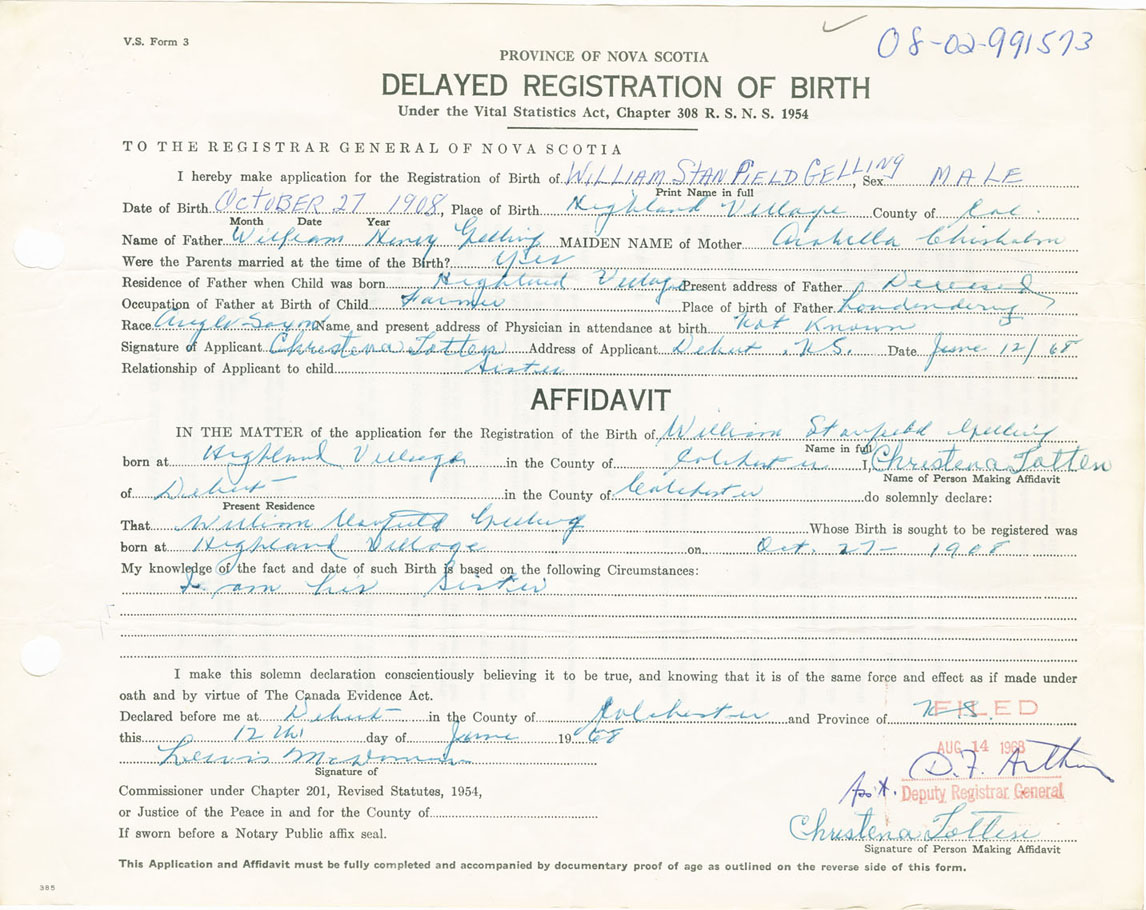 V.S. Form 3
08-02-991573
PROVINCE OF NOVA SCOTIA
DELAYED REGISTRATION OF BIRTH
Under the Vital Statistics Act, Chapter 308 R. S. N. S. 1954
TO THE REGISTRAR GENERAL OF NOVA SCOTIA
I hereby make application for the Registration of Birth of WILLIAM STANFIELD GELLING, Sex MALE
Print Name in full
Date of Birth OCTOBER 27 1908, Place of Birth Highland Village County of Col.
Month Date Year
Name of Father William Henry Gelling MAIDEN NAME of Mother Arabella Chisholm
Were the Parents married at the time of the Birth? Yes
Residence of Father when Child was born Highland Village Present address of Father Deceased
Occupation of Father at Birth of Child Farmer Place of birth of Father Londonderry
Race Anglo Saxon Name and present address of Physician in attendance at birth Not Known
Signature of Applicant Christena Totten Address of Applicant Debert, N.S. Date June 12/68
Relationship of Applicant to child Sister
AFFIDAVIT
IN THE MATTER of the application for the Registration of the Birth of William Stanfield Gelling
Name in full
born at Highland Village in the County of Colchester I, Christena Totten
Name of Person Making Affidavit
of Debert in the County of Colchester do solemnly declare:
Present Residence
That William Stanfield Gelling Whose Birth is sought to be registered was
born at Highland Village on Oct. 27 - 1908
My knowledge of the fact and date of such Birth is based on the following Circumstances:
I am his Sister
I make this solemn declaration conscientiously believing it to be true, and knowing that it is of the same force and effect as if made under
oath and by virtue of The Canada Evidence Act.
Declared before me at Debert in the County of Colchester and Province of N.S.
FILED
this 12th day of June 1968
AUG 14 1968
Lewis
Signature of
D.F. Arthur
Asst. Deputy Registrar General
Commissioner under Chapter 201, Revised Statutes, 1954,
or Justice of the Peace in and for the County of
Christena Totten
If sworn before a Notary Public affix seal.
Signature of Person Making Affidavit
This Application and Affidavit must be fully completed and accompanied by documentary proof of age as outlined on the reverse side of this form.
385